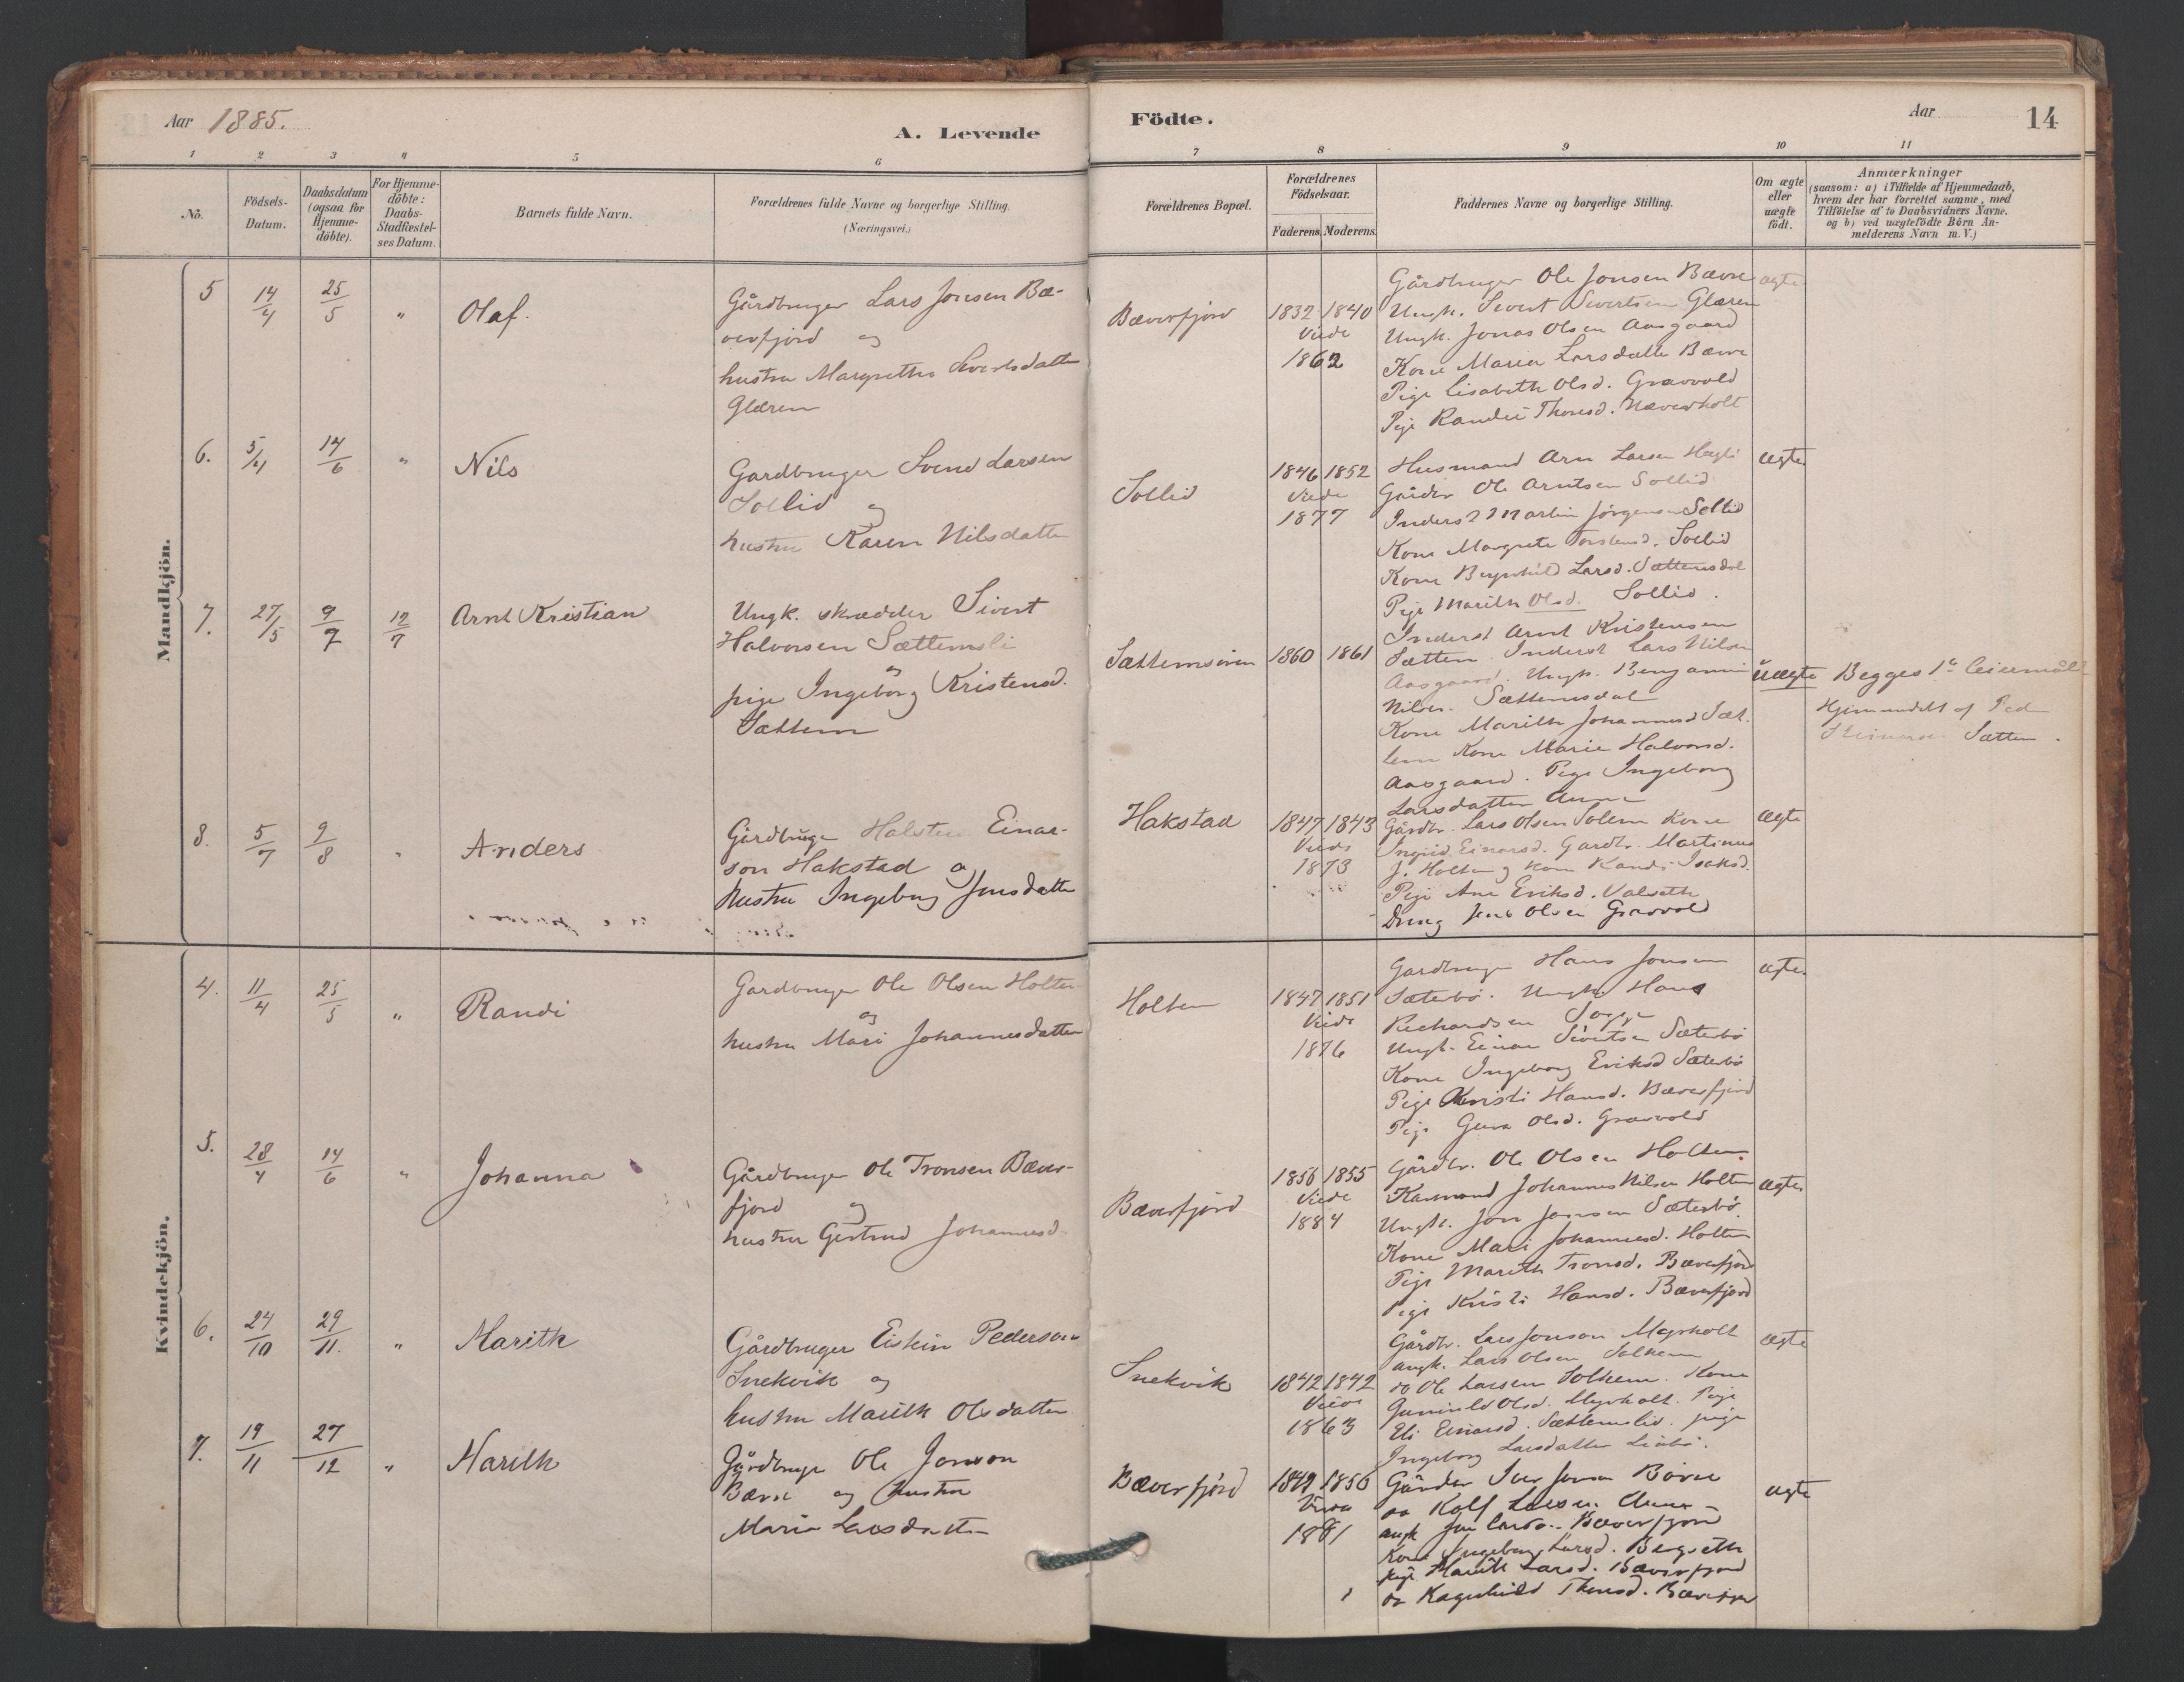 Aar 1885.
A. Levende
Födte.
Aar
14
1 2 3 4 5 6 7 8 9 10 11
No.
Födsels-
Datum.
Daabsdatum
(ogsaa for
Hjemme-
döbte).
For Hjemme-
döbte:
Daabs-
Stadfæstel-
ses Datum.
Barnets fulde Navn.
Forældrenes fulde Navne og borgerlige Stilling.
(Næringsvei.)
Forældrenes Bopæl.
Forældrenes
Födselsaar.
Faderens Moderens
Faddernes Navne og borgerlige Stilling.
Om ægte
eller
uægte
födt.
Anmærkninger
(saasom: a) i Tilfælde af Hjemmedaab,
hvem der har forrettet samme, med
Tilföielse af to Daabsvidners Navne.
og b) ved uægtefödte Börn An-
melderens Navn m. V.)
Mandkjön.
5 14/4 25/5 " Olaf.
Gårdbruger Lars Jonsen Bæ-
verfjord og
hustru Margrethe Sivertsdatter
Glæren
Bæverfjord
1832 1840
Viede
1862
Gårdbruger Ole Jonsen Bævre
Ungk. Sivert Sivertsen Glæren
Ungk. Jonas Olsen Aasgaard
Kone Maria Larsdatter Bævre
Pige Lisabeth Olsd. Gravvold
Pige Randi Thoresd. Næverholt
ægte
6. 5/4 14/6 " Nils
Gardbruger Svend Larsen
Sollid og
hustru Karen Nilsdatter
Sollid
1846 1852
Viede
1877
Husmand Arn Larsen
Gårdbr Ole Arntsen Sollid
Inderst Martin Jörgensen Sollid
Kone Margrete Torstensd. Sollid
Kone Larsd. Sættemsdal
Pige Marith Olsd. Sollid.
ægte
7. 27/5 9/7 12/7 Arnt Kristian
Ungk. skrædder Sivert
Halvorsen Sættemsli
og
pige Ingeborg Kristensd.
Sættem
Sættemsören
1860 1861
Inderst Arnt Kristensen
Sættem Inderst Lars Nilsen
Aasgaard. Ungk. Benjamin
Nilsen. Sættemsdal
Kone Marith Johannesd Sæt-
tem Kone Marie Halvorsd.
Aasgaard. Pige Ingeborg
Larsdatter
Uægte
Begges 1ste leiermål
Hjemmedöbt af Peder
Sættem.
8. 5/7 9/8 " Anders
Gårdbruger Halsten Einar-
son Hakstad og
hustru Ingeborg Jonsdatter
Hakstad
1847 1843
Viede
1873
Gårdbr. Lars Olsen Solem Kone
Ingrid Einarsd. Gardbr. Martinus
J. Holten og kone Randi Isaksd.
Pige Ane Eriksd. Valseth
Dreng Jens Olsen Gravvold
ægte
Kvindekjön.
4. 11/4 25/5 " Randi
Gardbruger Ole Olsen Holten
og
hustru Mari Johannesdatter
Holten
1847 1851
Viede
1876
Gardbruger Hans Jonsen
Sæterbö. Ungk. Hans
Richardsen
Ungk. Einar Sivertsen Sæterbö
Kone Ingeborg Eriksd Sæterbö
Pige Kristi Hansd. Bæverfjord
Pige Guru Olsd. Gravvold
ægte
5. 28/4 14/6 " Johanna
Gårdbruger Ole Tronsen Bæver-
fjord og
hustru Gjertrud Johannesd
Bæverfjord
1856 1855
Viede
1884
Gårdbr. Ole Olsen Holten
Kaarmand Johannes Nilsen Holten
Ungk. Jon Jonsen Sæterbö.
Kone Mari Johannesd. Holten
Pige Marith Tronsd. Bæverfjord
Pige Kristi Hansd. Bæverfjord
ægte
6. 24/10 29/11. " Marith
Gårdbruger Eistein Pederson
Snekvik og
hustru Marith Olsdatter
Snekvik
1842 1842
Viede
1863
Gårdbr. Lars Jonson Myrholt
ungk. Lars Olsen Solhem
do Ole Larsen Solhem. Kone
Gunnild Olsd. Myrholt. Pige
Eli Einarsd. Sættemslid. pige
Ingeborg Larsdatter
ægte
7. 19/11 27/12 " Marith
Gårdbruger Ole Jonson
Bævre og hustru
Maria Larsdatter
Bæverfjord
1849 1856
Viede
1881
Gårdbr Iver Jonsen Bævre
do Rolf Larsen
ungk Jon Larsen Bæverfjord
Kone Ingeborg Larsd. Bergseth
pige Marith Larsd. Bæverfjord
do Ragnhild Thoresd. Bæverfjor
ægte